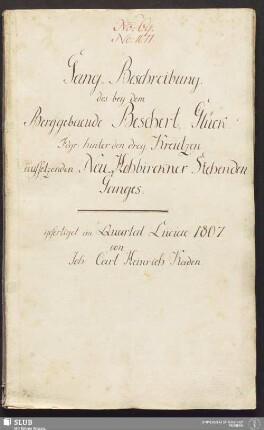 No. 69.
Gang Beschreibung
des bey dem
Berggebaeude Beschert Glück
Fdgr. hinter den drey Kreutzen
aufsetzenden Neu Hohbirckner Stehenden
Ganges.
gefertiget im Quartal Luciae 1807
von
Joh. Carl Heinrich Kaden
SLUB
Wir führen Wissen.